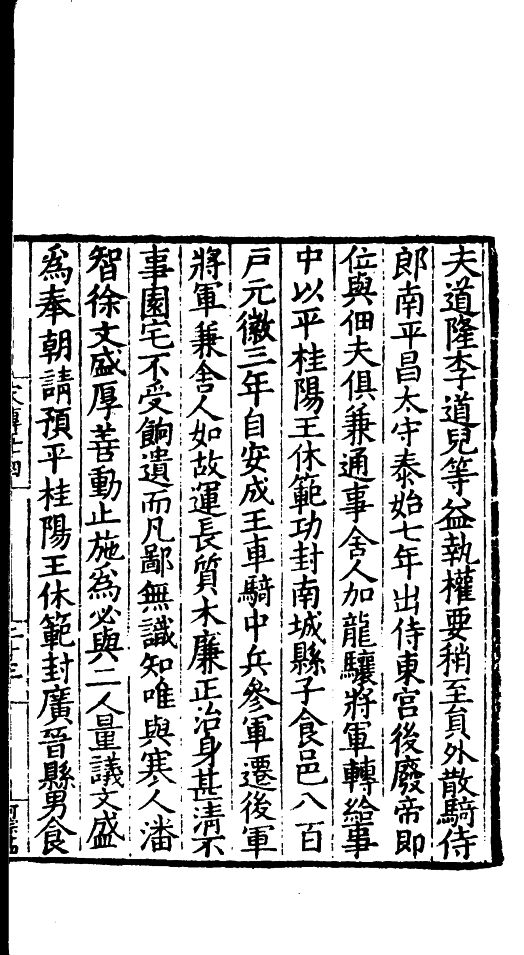 夫道隆李道兒等並執權要稍至員外散騎侍
郎南平昌太守泰始七年出侍東宫後廢帝即
位與佃夫俱兼通事舍人加龍驤將軍轉給事
中以平桂陽王休範功封南城縣子食邑八百
戸元徽三年自安成王車騎中兵參軍遷後軍
將軍兼舍人如故運長質木廉正治身甚清不
事園宅不受餉遺而凡鄙無識知唯與寒人潘
智徐文盛厚善動止施為必與二人量議文盛
為奉朝請預平桂陽王休範封廣晉縣男食